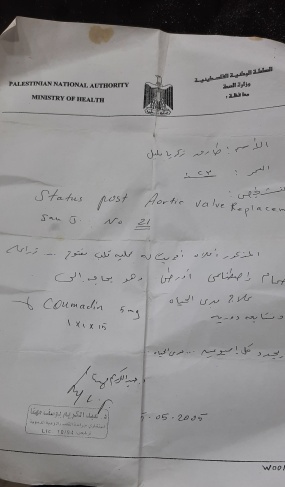 PALESTINIAN NATIONAL AUTHORITY
MINISTRY OF HEALTH
السلطة الوطنية الفلسطينية
وزارة الصحة
محافظة :
الأسم : طارق زكريا
العمر :
التشخيص :
Status post Aortic Valve Replacem
No 21
المذكور أعلاه أجريت له عملية قلب مفتوح - زراعة
صمام إصطناعي أورطي وهو بحاجة الى
علاج مدى الحياة
ومتابعة دورية
Coumadin 5mg
1x1x15
مدى الحياة
عبد الكريم
5-05-2005
W00